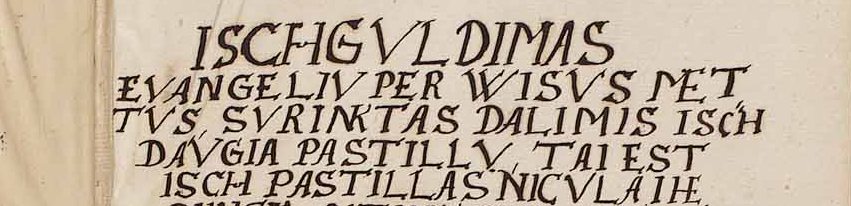 ISCHGVLDIMAS
EVANGELIV PER WISVS MET
TVS, SVRINKTAS DALIMIS ISCH
DAVGIA PASTILLV, TAI EST
ISCH PASTILLAS NICVLA IH